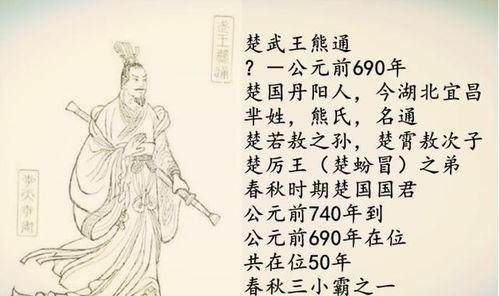 楚武王熊通
？－公元前690年
楚国丹阳人，今湖北宜昌
芈姓，熊氏，名通
楚若敖之孙，楚霄敖次子
楚厉王（楚蚡冒）之弟
春秋时期楚国国君
公元前740年到
公元前690年在位
共在位50年
春秋三小霸之一